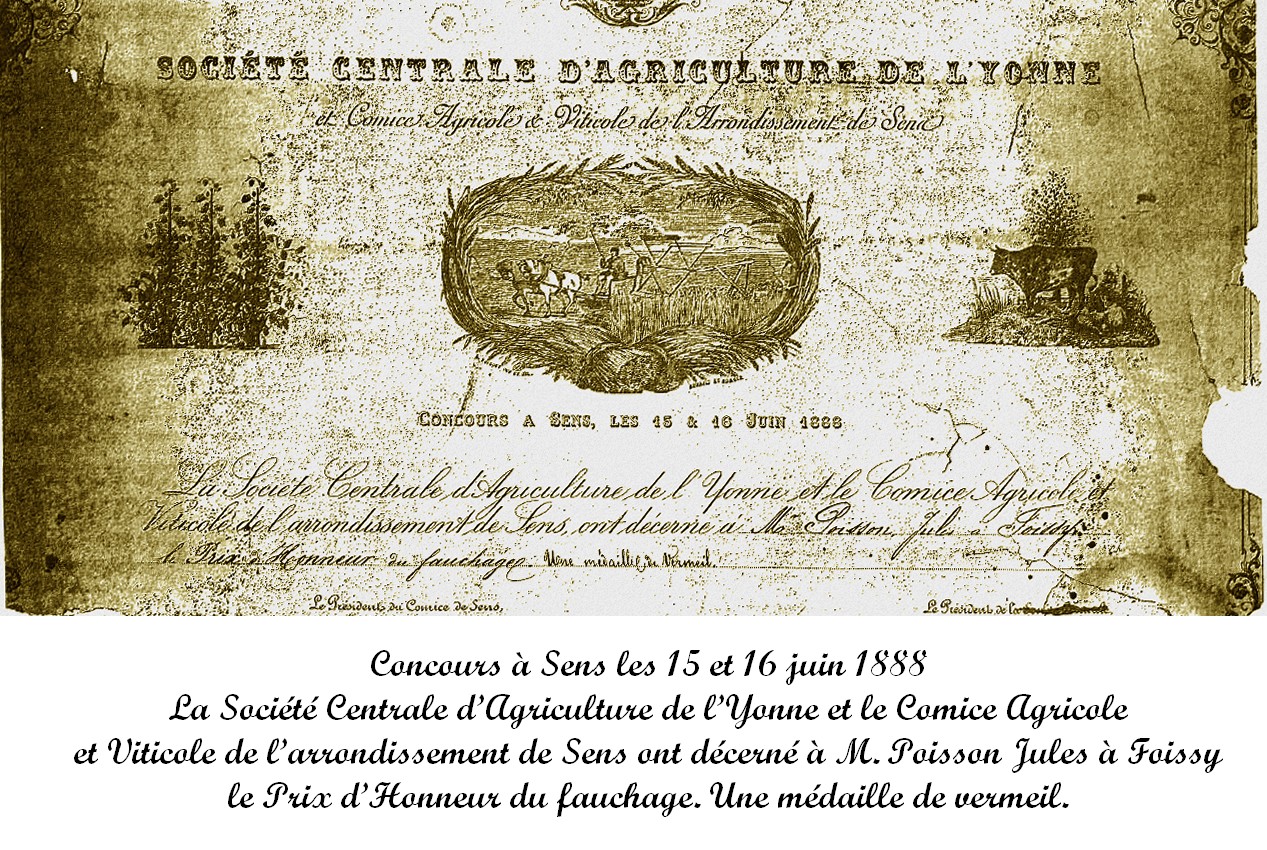 SOCIÉTÉ CENTRALE D'AGRICULTURE DE L'YONNE
et Comice Agricole & Viticole de l'Arrondissement de Sens
CONCOURS A SENS, LES 15 & 16 JUIN 1888
La Société Centrale d'Agriculture de l'Yonne et le Comice Agricole et
Viticole de l'arrondissement de Sens, ont décerné à Mr. Poisson, Jules à Foissy
le Prix d'Honneur du fauchage. Une médaille de Vermeil.
Le Président du Comice de Sens,
Le Président de la
Concours à Sens les 15 et 16 juin 1888
La Société Centrale d'Agriculture de l'Yonne et le Comice Agricole
et Viticole de l'arrondissement de Sens ont décerné à M. Poisson Jules à Foissy
le Prix d'Honneur du fauchage. Une médaille de vermeil.